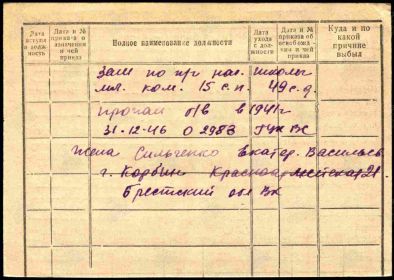 Дата вступл. в должность
Дата и № приказа о назначении и чей приказ
Полное наименование должности
Дата ухода с должности
Дата и № приказа об освобождении и чей приказ
Куда и по какой причине выбыл
Зам по п/ч нач. школы
мл. ком. 15 с.п. 49 с.д.
пропал б/в в 1941 г
31-12-46 0 2983 ГУК ВС
Жена Сильченко Екатер. Васильев
г. Кобрин Красноармейская 21
Брестский обл ВК